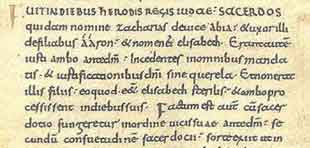 FUIT IN DIEBUS HERODIS REGIS IUDAEAE SACERDOS
quidam nomine zacharias de uice abia · & uxor illi
de filiabus aaron · & nomen ei elisabeth · Erant autem
iusti ambo ante dm̄ · Incedentes in omnibus manda
tis · & iustificationibus dn̄i sine querela · Et non erat
illis filius · eo quod e&̄ elisabeth sterilis · & ambo pro
cessissent in diebus suis · Factum est aut̄ cū sacer
dotio fungeretur in ordine uicis suae ante dm̄ · se
cundū consuetudinē sacerdotii · sorte exiit ut in